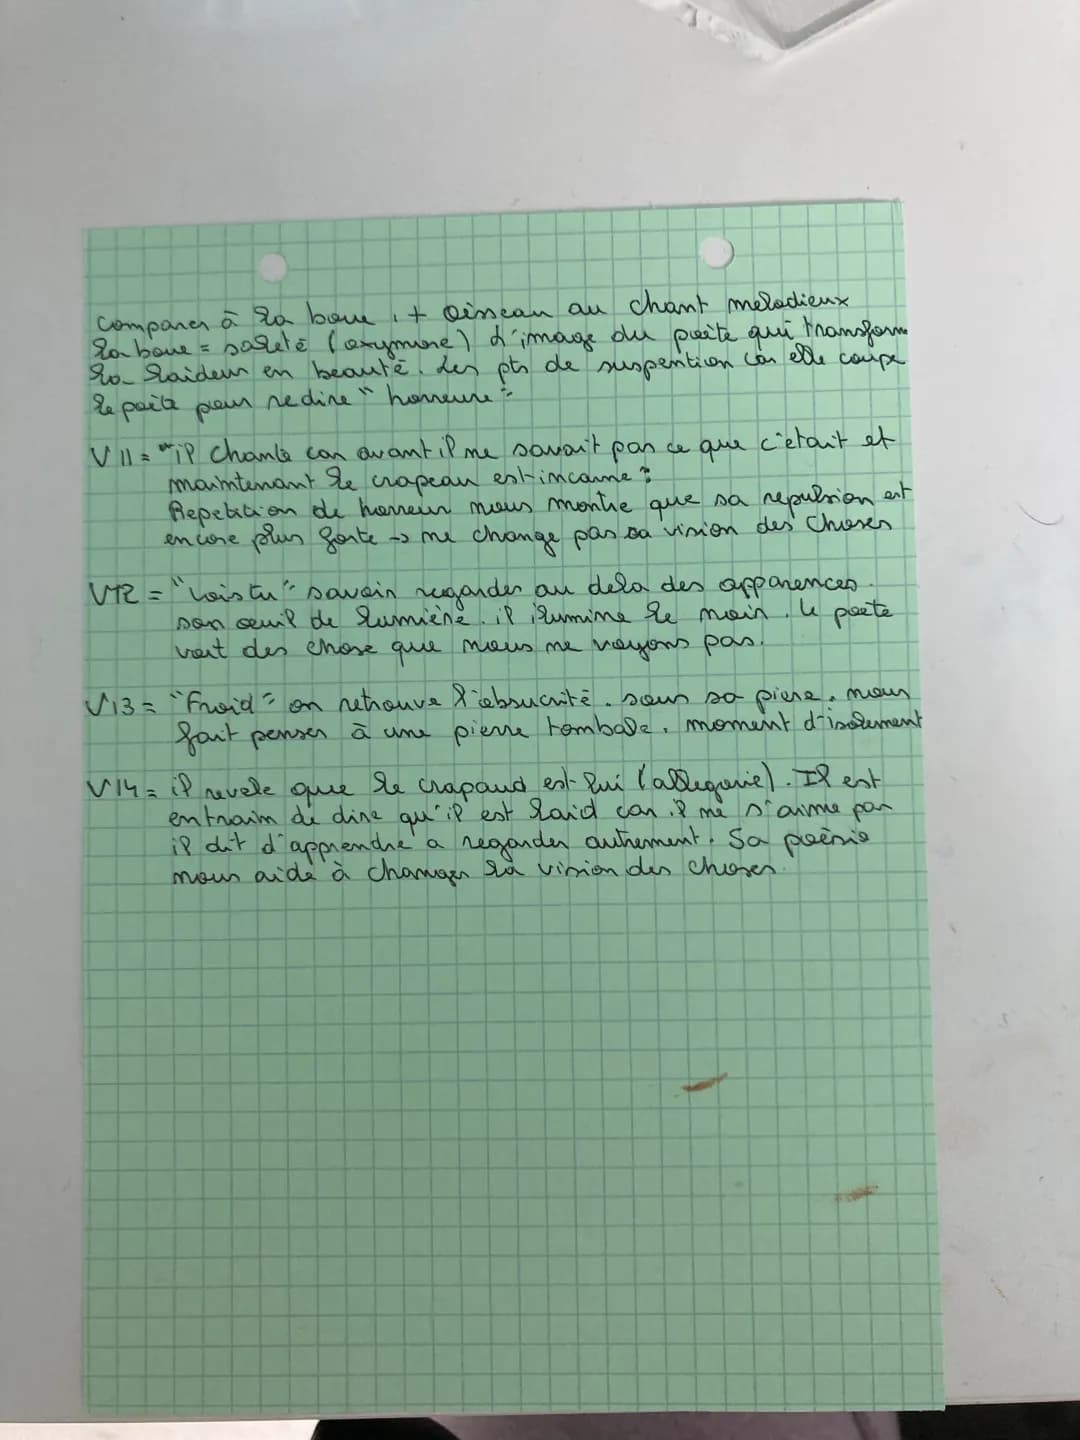 comparer à la boue, + oisseau au chant melodieux
La boue = saleté (oxymore) d'image du poète qui transforme
la laideur en beauté. Les pts de suspention car elle coupe
le poète pour redire "horreure"
V11 = "il chante car avant il ne savait pas ce que c'était et
maintenant le crapeau est incarné"
Repetition de horreur nous montre que sa repulsion est
encore plus forte → ne change pas sa vision des choses
V12 = "vois tu" savoir regarder au dela des apparences.
son oeuil de lumière. il ilumine le noir. le poète
voit des chose que nous ne voyons pas.
V13 = "Froid" on retrouve l'obsucrité. sous sa piere. nous
fait penser à une pierre tombale. moment d'isolement
V14 = il revele que le crapaud est lui (allegorie). Il est
entraim de dire qu'il est laid car il ne s'aime pas
il dit d'apprendre a regarder autrement. Sa poèsie
nous aide à changer la vision des choses.